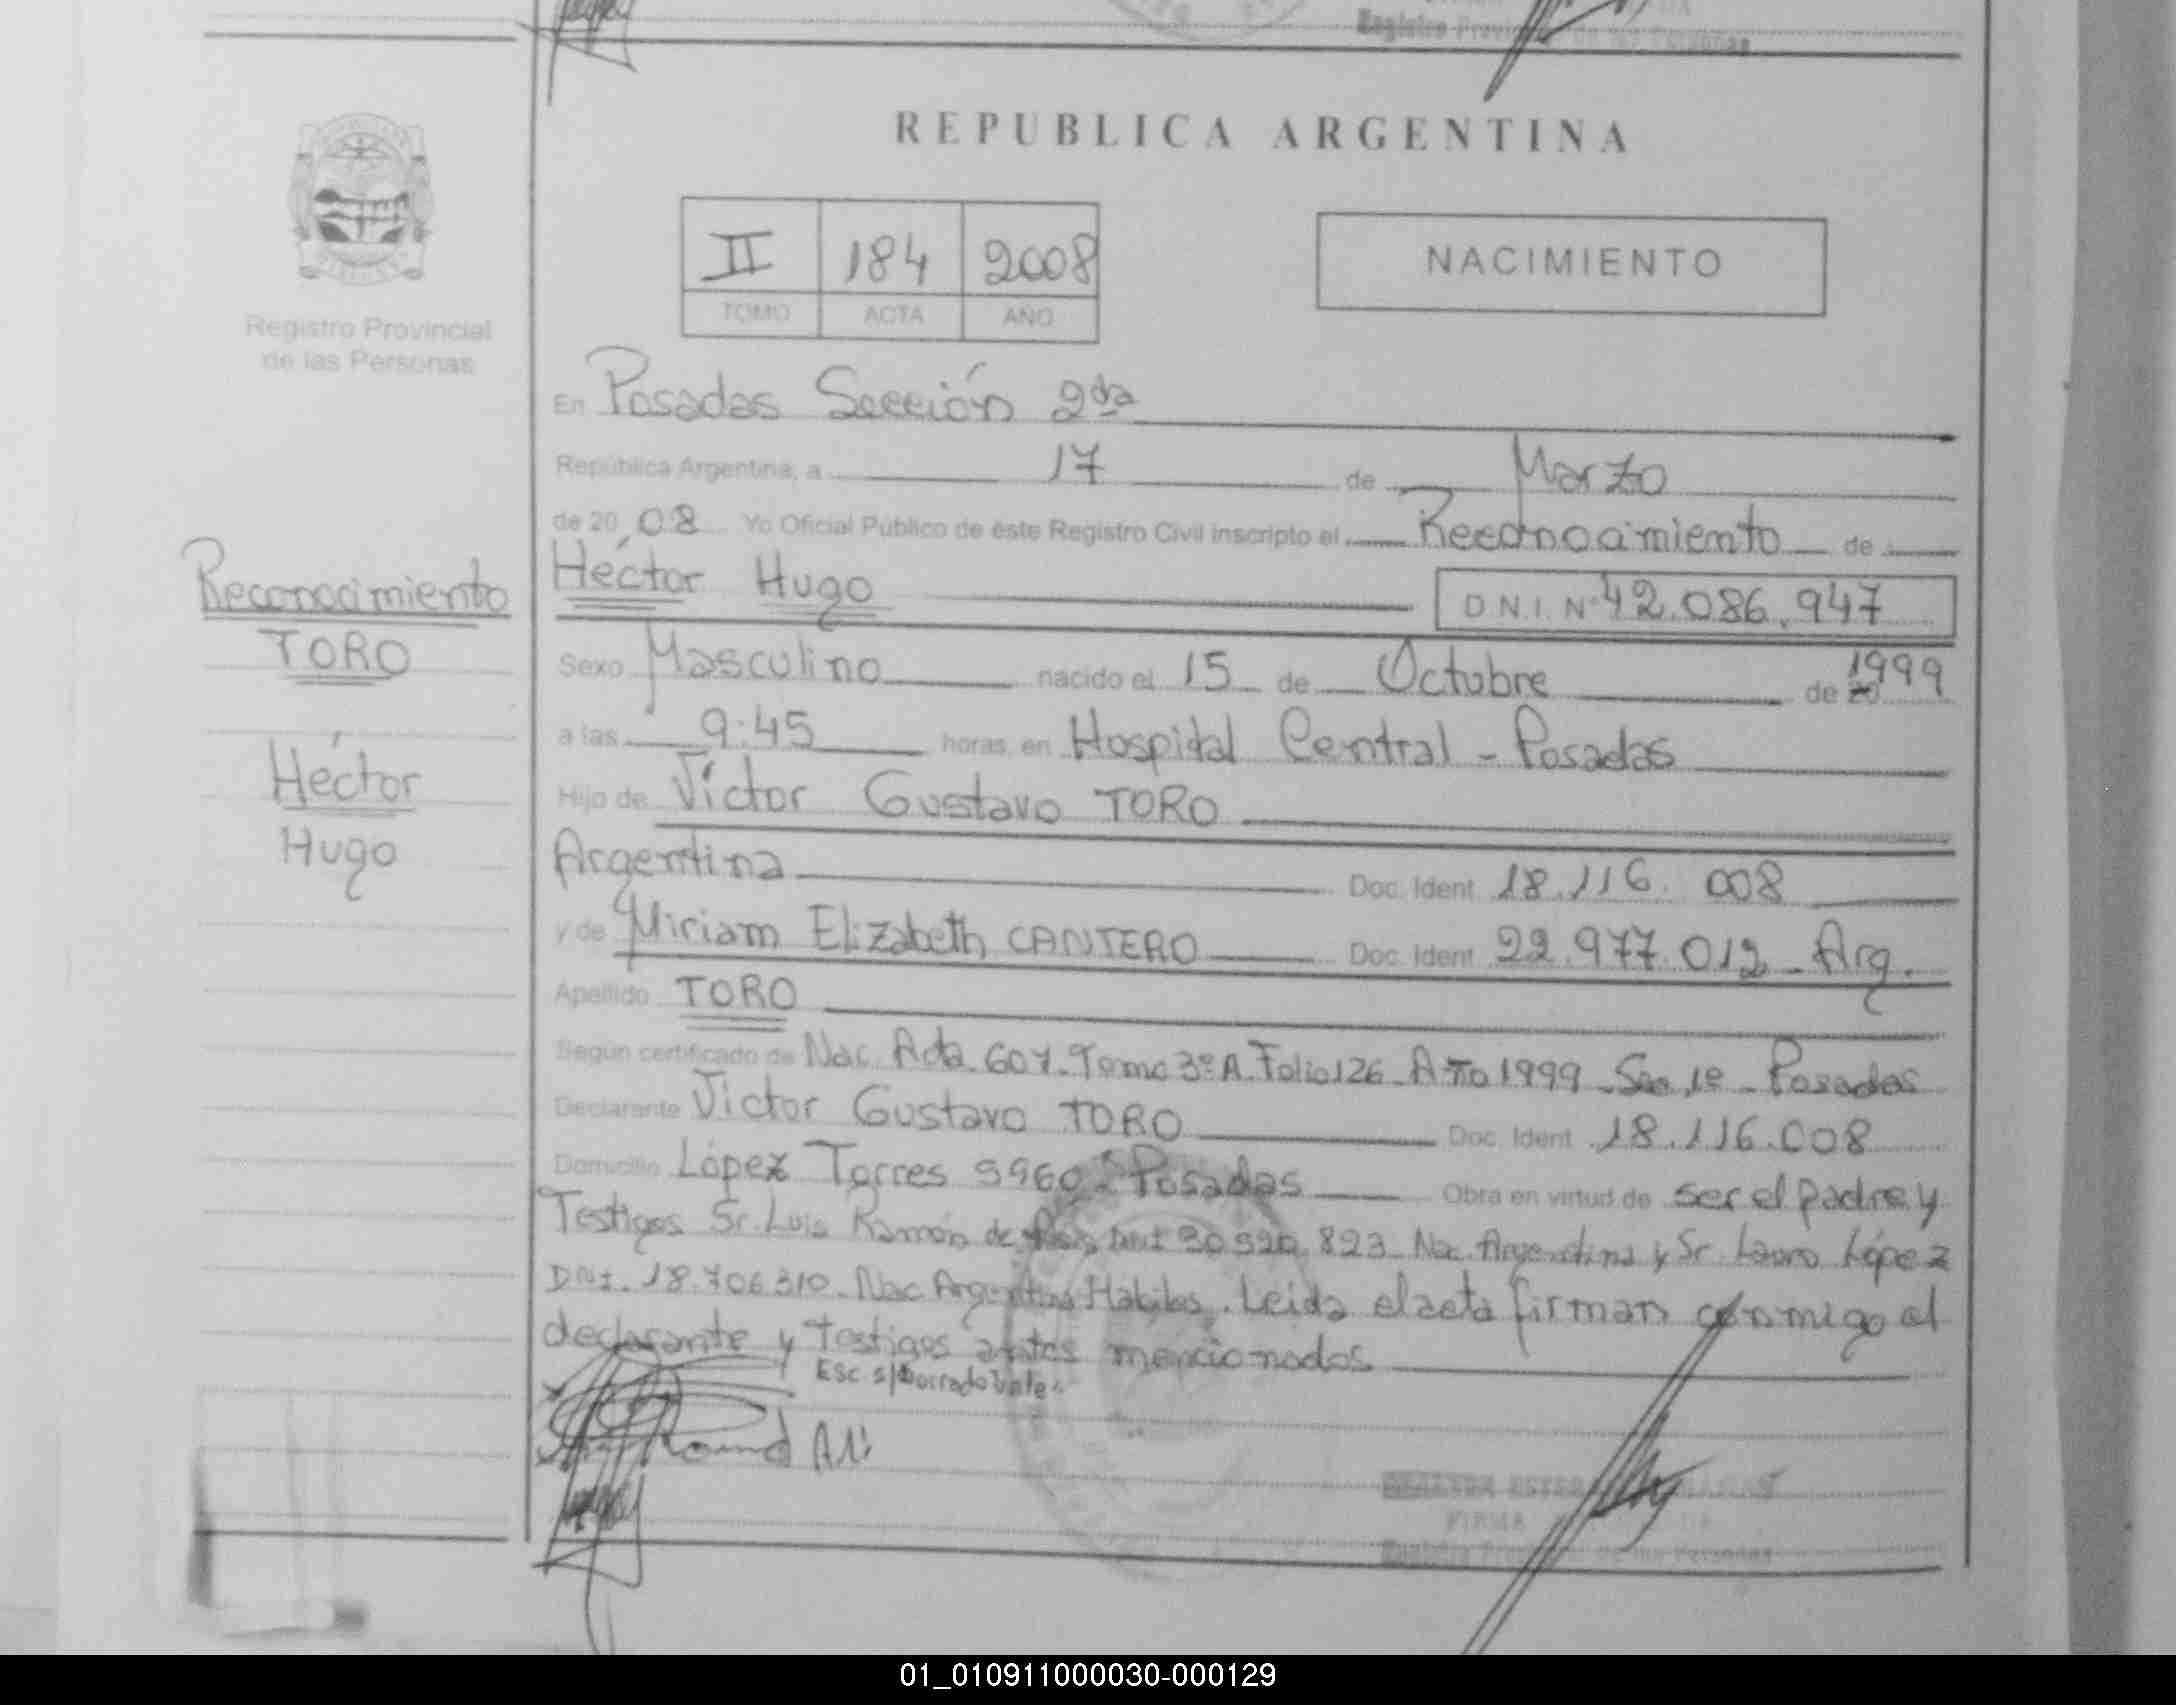 Registro Provincial de las Personas
REPUBLICA ARGENTINA
II 184 2008
TOMO ACTA AÑO
NACIMIENTO
Registro Provincial
de las Personas
En Posadas Sección 2da
República Argentina, a 17 de Marzo
de 20 08 Yo Oficial Público de este Registro Civil inscripto el Reconocimiento de
Héctor Hugo D.N.I. Nº 42.086.947
Sexo Masculino nacido el 15 de Octubre de 1999
a las 9:45 horas, en Hospital Central - Posadas
Hijo de Víctor Gustavo TORO
Argentina Doc. Ident. 18.116.008
y de Miriam Elizabeth CANTERO Doc. Ident. 22.977.012 - Arg.
Apellido TORO
Según certificado de Nac. Acta 607 - Tomo 3º A - Folio 126 - Año 1999 - Sec. 1º - Posadas
Declarante Víctor Gustavo TORO Doc. Ident. 18.116.008
Domicilio López Torres 5960 - Posadas Obra en virtud de ser el padre y
Testigos Sr. Luis Ramón de 823 Nac. Argentina y Sr. Lauro López
DNI. 18.706310 - Nac Argentina Hábiles. Leída el acta firman conmigo el
declarante y testigos antes mencionados
Esc. s/borrado Vale.
FIRMA
Registro Provincial de las Personas
Reconocimiento
TORO
Héctor
Hugo
01_010911000030-000129